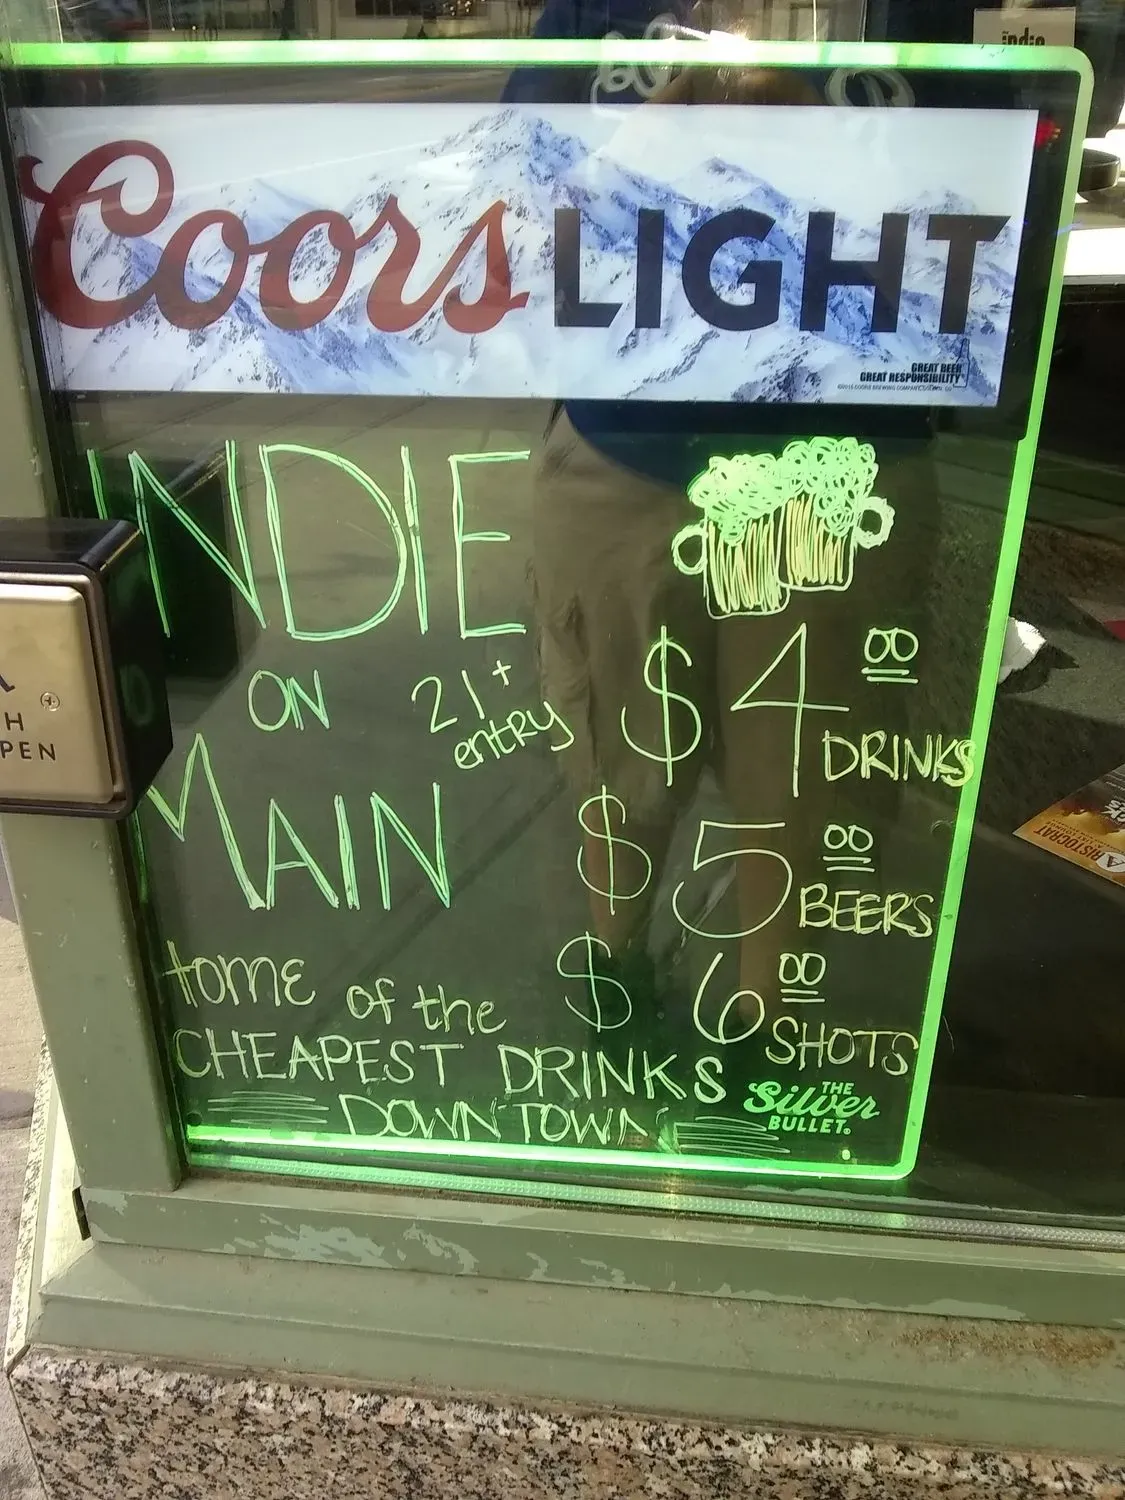 indie
Coors LIGHT
GREAT BEER
GREAT RESPONSIBILITY
INDIE
ON
21+
entry
MAIN
$4 00
DRINKS
$5 00
BEERS
$6 00
SHOTS
Home of the
CHEAPEST DRINKS
DOWNTOWN
THE
Silver
BULLET.
H
PEN
ARISTOCRAT